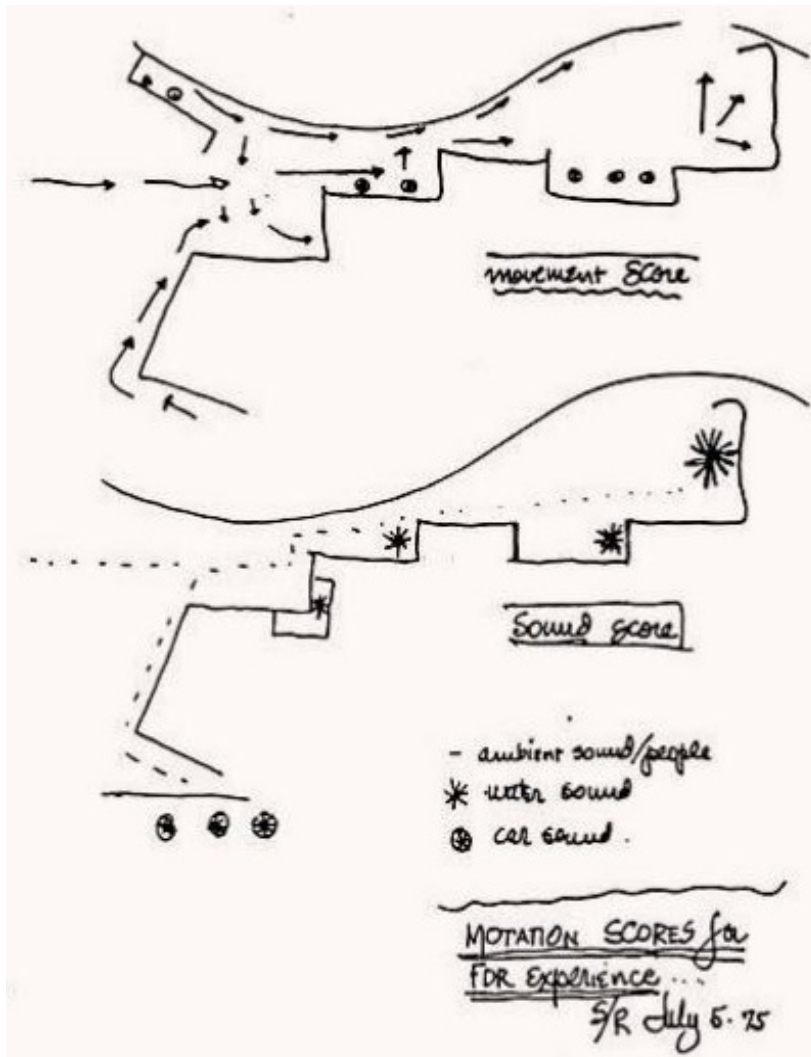 movement score
Sound score
- ambient sound/people
water sound
car sound.
MOTATION SCORES for
FDR Experience ...
S/R July 5.75